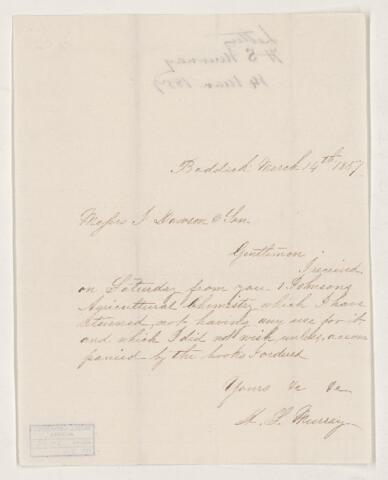 Letter
H S Murray
14 Mar 1857
Baddeck March 14th 1857
Messrs J Dawson & Son
Gentlemen
I received
on Saturday from you 1 Johnsons
Agricultural Chemistry which I have
returned, not having any use for it
and which I did not wish unless accom
panied by the books I ordered
Yours &c &c
H. S. Murray